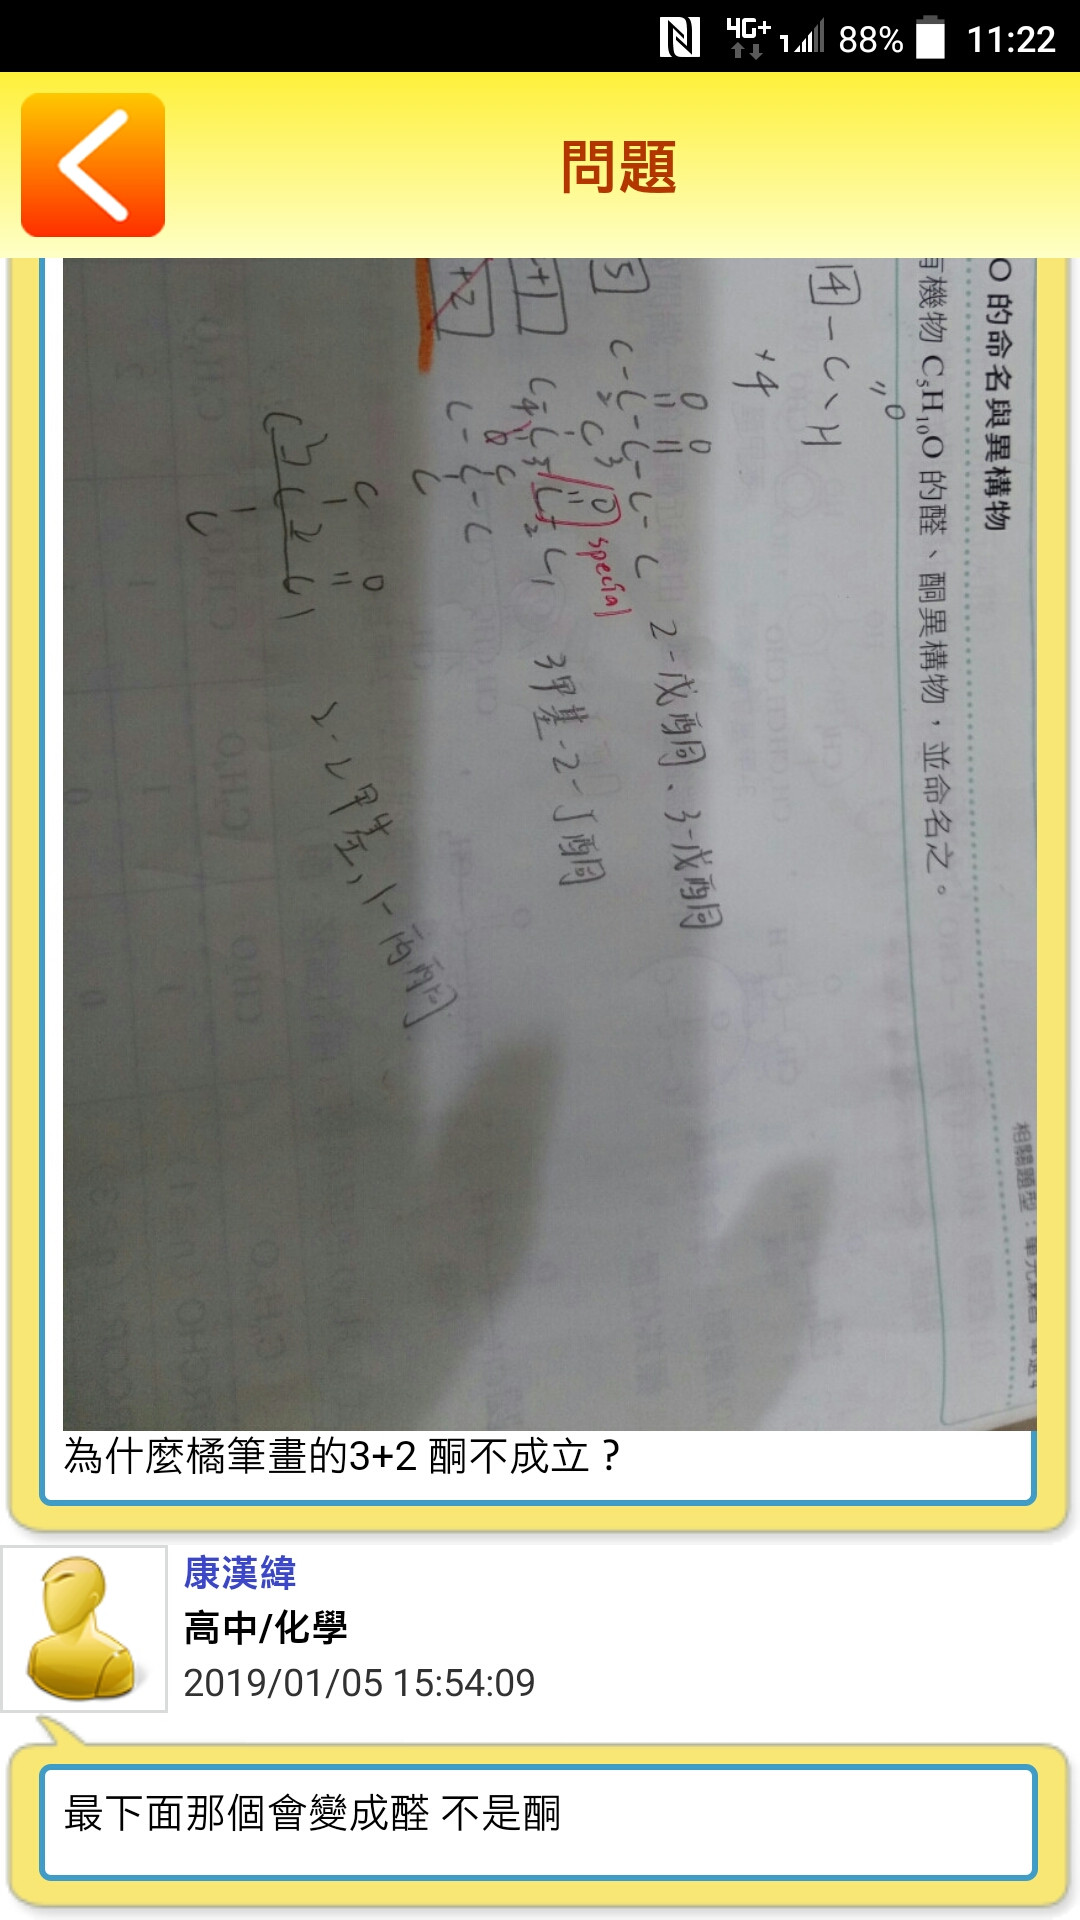 4G+ 1 88% 11:22
問題
O 的命名與異構物
有機物 C₅H₁₀O 的醛、酮異構物，並命名之。
相關題型：單元練習 單選4
4 -C、H
O
+4
5
O O
C-C-C-C-C
2 3
2-戊酮、3-戊酮
+1
C
C4-C3-C2-C1
O
special
3甲基-2-丁酮
+2
C
C-C-C
C
C O
C3-C2-C1
C
2-2甲基,1-丙酮
為什麼橘筆畫的3+2 酮不成立？
康漢緯
高中/化學
2019/01/05 15:54:09
最下面那個會變成醛 不是酮